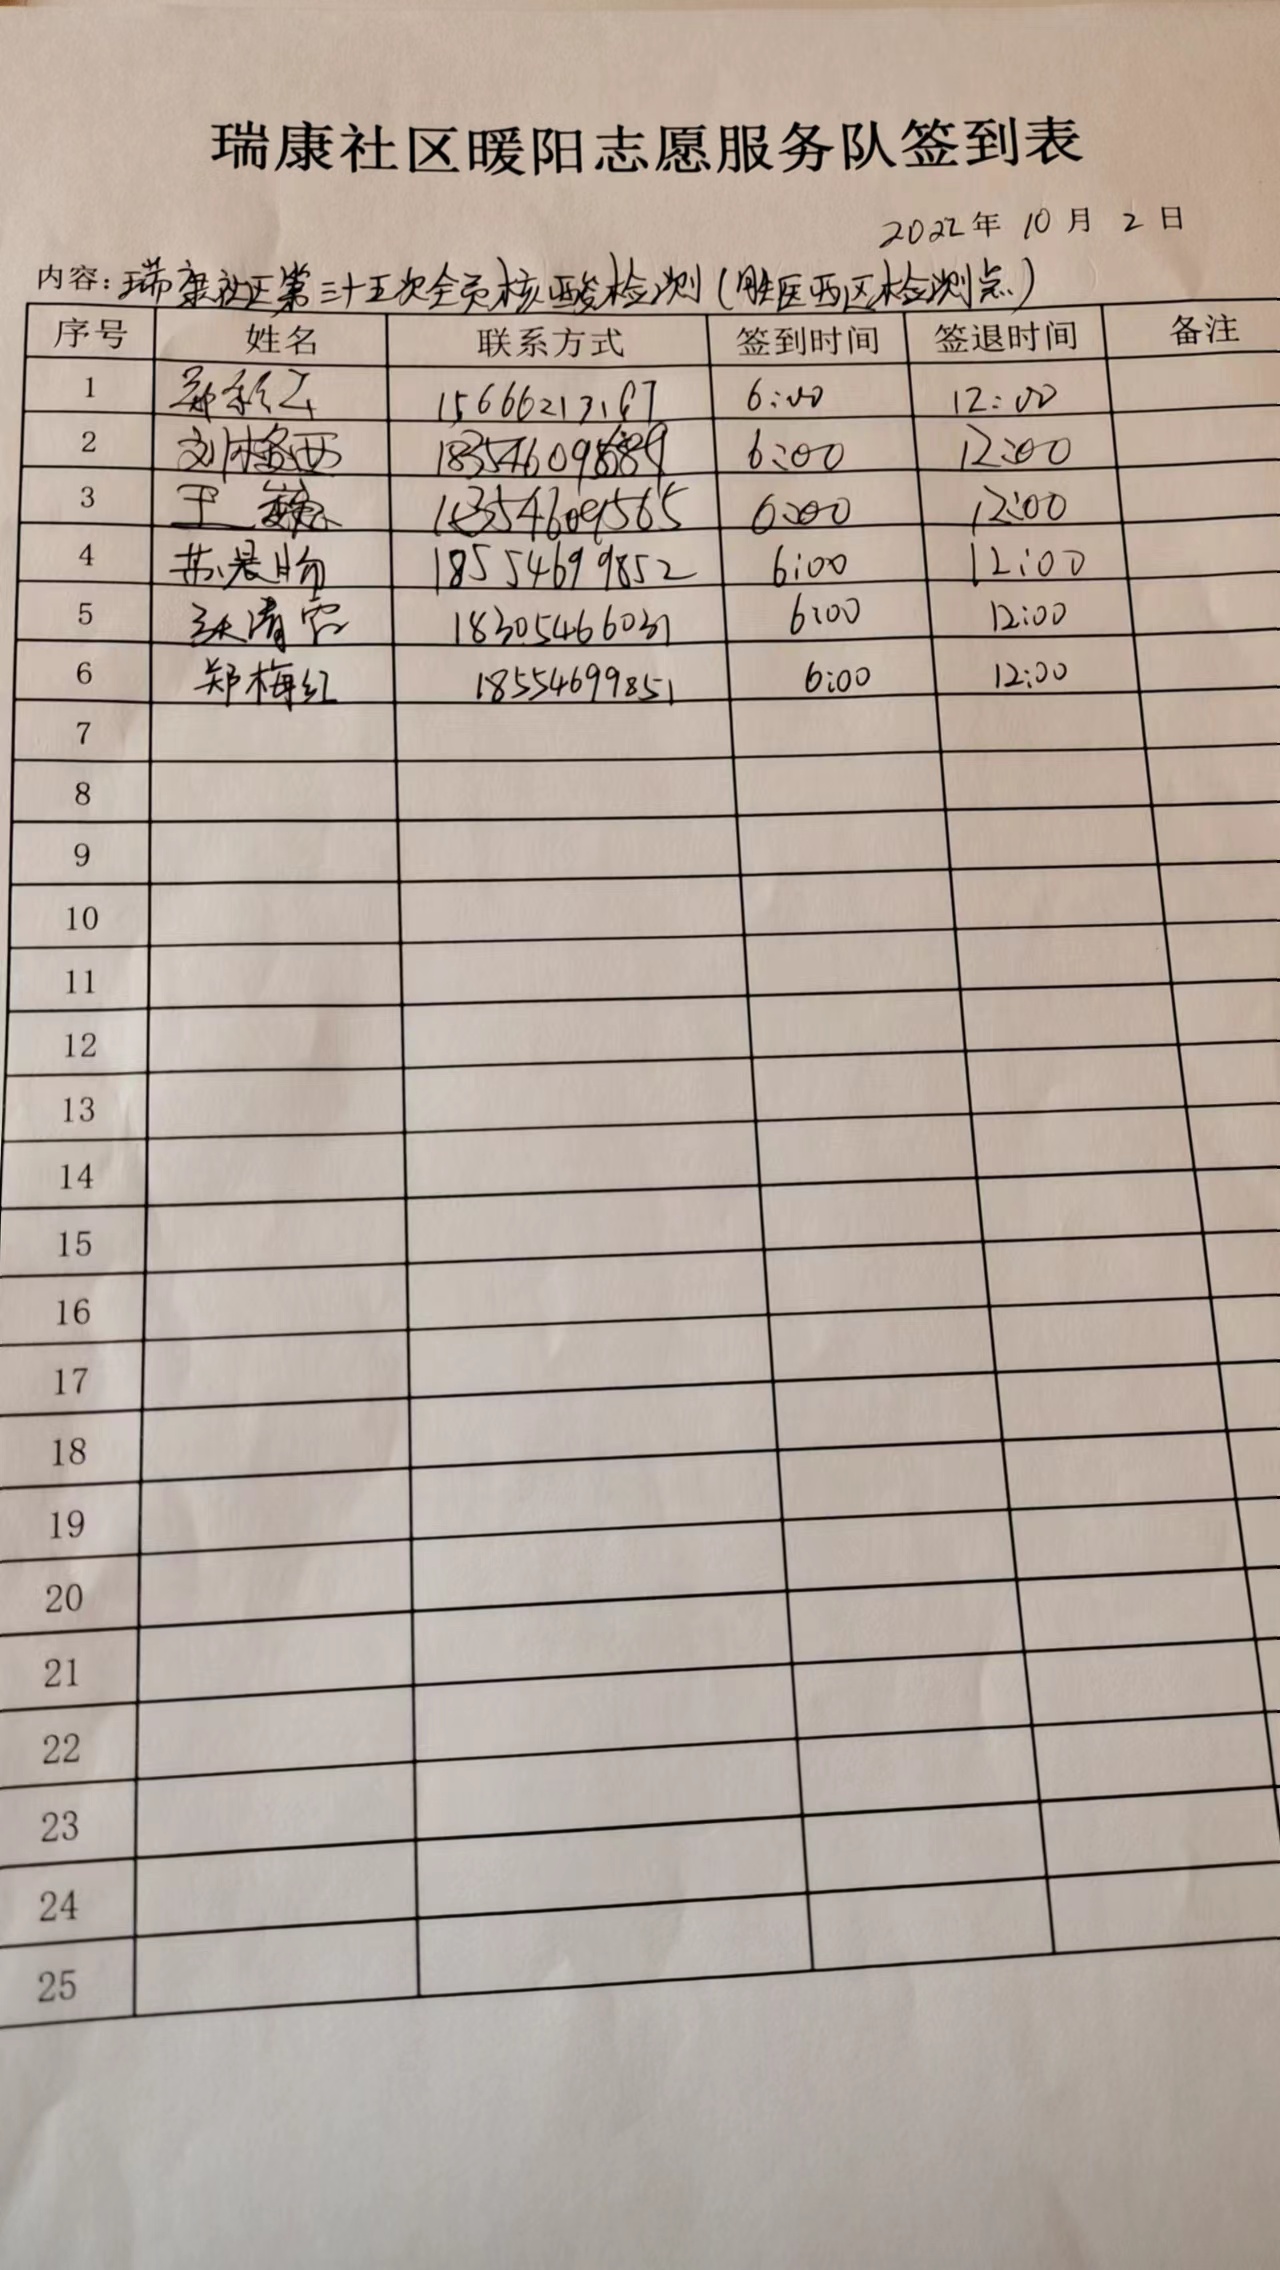 瑞康社区暖阳志愿服务队签到表
2022年 10月 2日
内容: 瑞康社区第三十五次全员核酸检测(胜医西区检测点)
序号 姓名 联系方式 签到时间 签退时间 备注
1 6:00 12:00
2 刘梅西 6:00 12:00
3 王 6:00 12:00
4 苏晨 18554699852 6:00 12:00
5 清 18305466031 6:00 12:00
6 郑梅红 18554699851 6:00 12:00
7
8
9
10
11
12
13
14
15
16
17
18
19
20
21
22
23
24
25